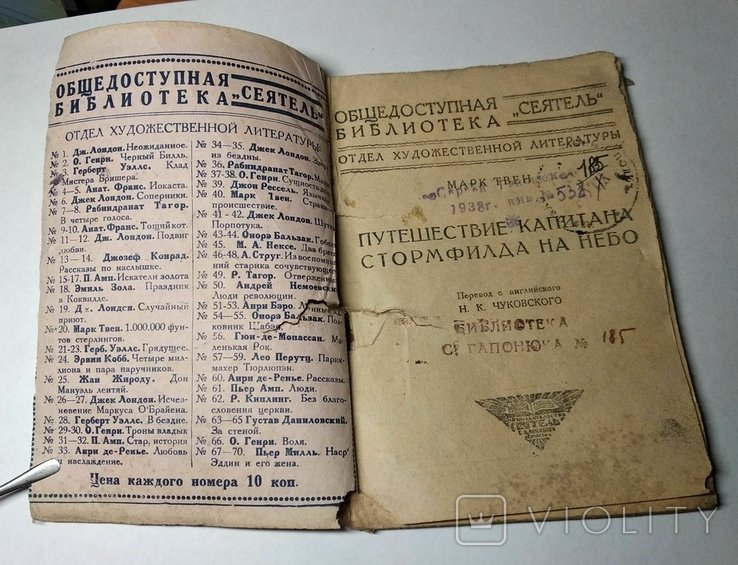 ОБЩЕДОСТУПНАЯ
БИБЛИОТЕКА „СЕЯТЕЛЬ"
ОТДЕЛ ХУДОЖЕСТВЕННОЙ ЛИТЕРАТУРЫ:
№ 1. Дж. Лондон. Неожиданное
№ 2. О. Генри. Черный Билль.
№ 3. Герберт Уэллс. Клад
Мистера Бришера.
№ 4—5. Анат. Франс. Иокаста.
№ 6. Джек Лондон. Соперники.
№ 7—8. Рабиндранат Тагор.
В четыре голоса.
№ 9-10. Анат. Франс. Тощий кот.
№ 11—12. Дж. Лондон. Подвиг
любви.
№ 13—14. Джозеф Конрад.
Рассказы по наслышке.
№ 15-17. П. Амп. Искатели золота
№ 18. Эмиль Зола. Праздник
в Коквилде.
№ 19. Дж. Лондон. Случайный
приют.
№ 20. Марк Твен. 1.000.000 фун-
тов стерлингов.
№ 21-23. Герб. Уэллс. Грядущее.
№ 24. Эрвин Кобб. Четыре мил-
лиона и пара наручников.
№ 25. Жан Жироду. Дон
Мануэль лентяй.
№ 26—27. Джек Лондон. Исчез-
новение Маркуса О'Брайена.
№ 28. Герберт Уэллс. В бездне.
№ 29-30. О. Генри. Троны владык
№ 31—32. П. Амп. Стар, история
№ 33. Анри де-Ренье. Любовь
и наслаждение.
№ 34—35. Джек Лондон.
из бездны.
№ 36. Рабиндранат Тагор.
№ 37-38. О. Генри. Сущность
№ 39. Джон Рессель.
№ 40. Марк Твен.
происшествие.
№ 41—42. Джек Лондон.
Порпотука.
№ 43-44. Онорэ Бальзак. Гобсек
№ 45. М. А. Нексе. Два брата
№ 46-48. А. Струг. Из воспоминаний
старика сочувствующего
№ 49. Р. Тагор. Отвержен
№ 50. Андрей Немоевский
Люди революции.
№ 51-53. Анри Бэро.
№ 54—55. Онорэ Бальзак. Пол-
ковник Шабер.
№ 56. Гюи-де-Мопассан. Ма-
ленькая Рок.
№ 57—59. Лео Перутц. Парик-
махер Тюрлюпэн.
№ 60. Анри де-Ренье. Рассказы.
№ 61. Пьер Амп. Люди.
№ 62. Р. Киплинг. Без благо-
словения церкви.
№ 63—65 Густав Даниловский.
За стеной.
№ 66. О. Генри. Воля.
№ 67—70. Пьер Милль. Наср-
Эддин и его жена.
Цена каждого номера 10 коп.
ОБЩЕДОСТУПНАЯ
БИБЛИОТЕКА „СЕЯТЕЛЬ"
ОТДЕЛ ХУДОЖЕСТВЕННОЙ ЛИТЕРАТУРЫ
МАРК ТВЕН
185
1938г. инв. № 532
ПУТЕШЕСТВИЕ КАПИТАНА
СТОРМФИЛДА НА НЕБО
Перевод с английского
Н. К. ЧУКОВСКОГО
БИБЛИОТЕКА
С. ГАПОНЮКА № 185
СЕЯТЕЛЬ
VIOLITY